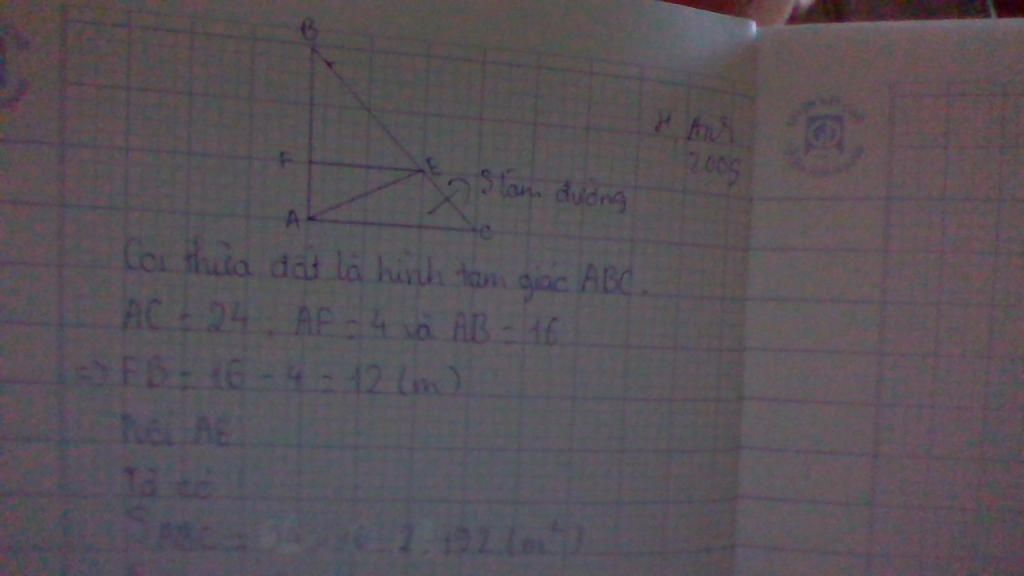 B
H. Anh
2005
F
E
S làm đường
A
C
Coi thửa đất là hình tam giác ABC.
AC = 24. AF = 4 và AB = 16
=> FB = 16 - 4 = 12 (m)
Nối AE
Ta có
S ABC = 24 × 16 : 2 = 192 (m²)